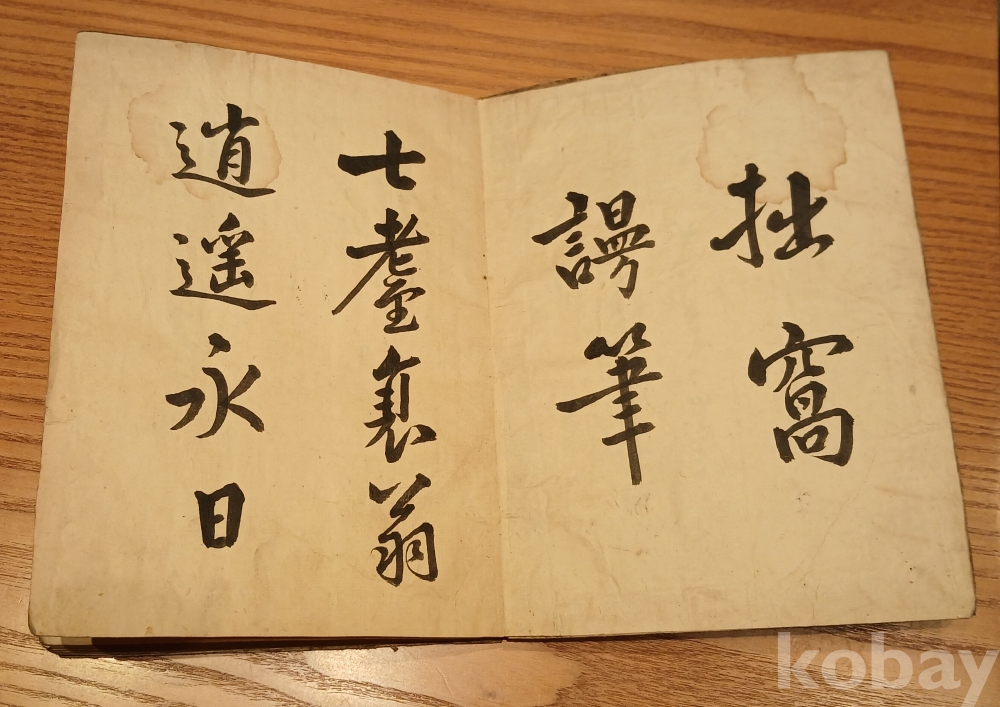 拙窩
謾筆
七耋衰翁
逍遥永日
kobay